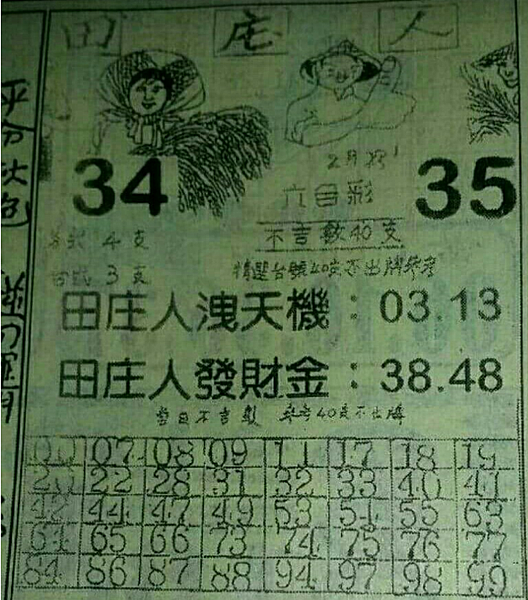 田 庄 人
2月 號
34 六合彩 35
不吉數40支
4支
精選台號40支不出牌參考
3支
田庄人洩天機：03.13
田庄人發財金：38.48
當日不吉數 參考40支不出牌
00 07 08 09 11 17 18 19
20 22 28 31 32 33 40 41
42 44 47 49 53 54 55 63
64 65 66 73 74 75 76 77
84 86 87 88 94 97 98 99